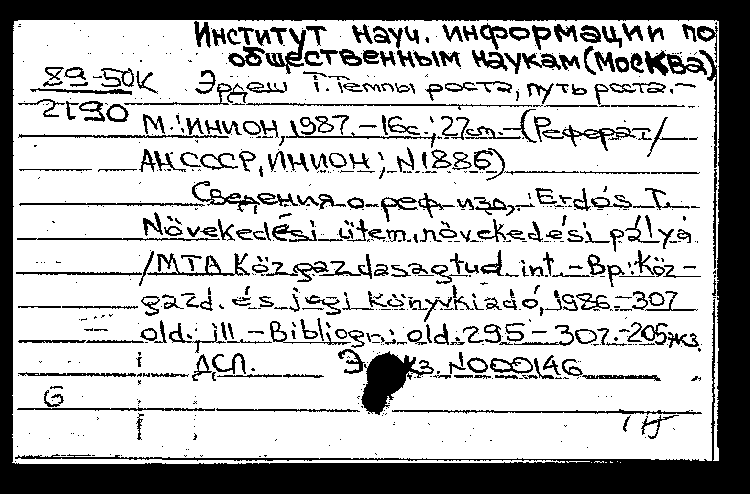 Институт науч. информации по
общественным наукам (Москва)
89-50К Эрдеш Т. Темпы роста, путь роста.-
2190
М.: ИНИОН, 1987.-16с.; 27см.-(Реферат/
АН СССР, ИНИОН; N1886)
Сведения о реф. изд.: Erdös T.
Növekedési ütem, növekedési pálya
/MTA Közgazdasagtud. int.-Bp.: Köz-
gazd. és jogi könyvkiadó, 1986.-307
old., ill.-Bibliogr.: old. 295-307.-205экз.
ДСП. Э кз. N000146
6